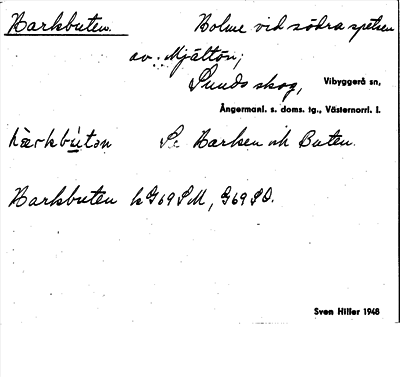 Harkbuten. Holme vid södra spetsen
av Mjältön;
Sunds skog, Vibyggerå sn,
Ångermanl. s. doms. tg., Västernorrl. l.
Se Harken och Buten.
Harkbuten k G69SM, G69SO.
Sven Hiller 1948